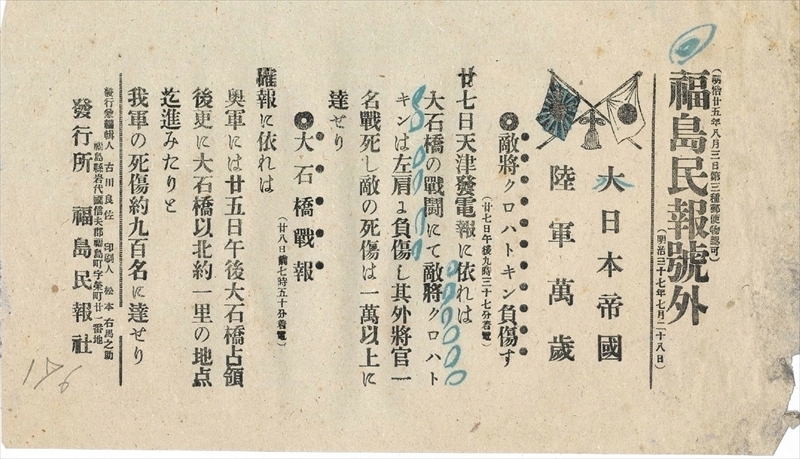 （明治廿五年八月三日第三種郵便物認可）
福島民報號外
（明治三十七年七月二十八日）
大日本帝國
陸軍萬歲
◉敵將クロハトキン負傷す
（廿七日午後九時三十七分着電）
廿七日天津發電報に依れは
大石橋の戰鬪にて敵將クロハト
キンは左肩よ負傷し其外將官一
名戰死し敵の死傷は一萬以上に
達せり
◉大石橋戰報
（廿八日前七時五十分着電）
確報に依れは
奧軍には廿五日午後大石橋占領
後更に大石橋以北約一里の地点
迄進みたりと
我軍の死傷約九百名に達せり
發行兼編輯人 古川良佐 印刷人 松本右馬之助
福島縣岩代國信夫郡福島町字榮町廿一番地
發行所 福島民報社